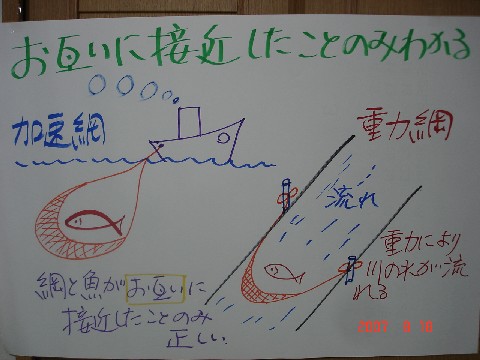 お互いに接近したことのみわかる
加速網
重力網
流れ
重力により
川の水が流
れる
網と魚がお互いに
接近したことのみ
正しい